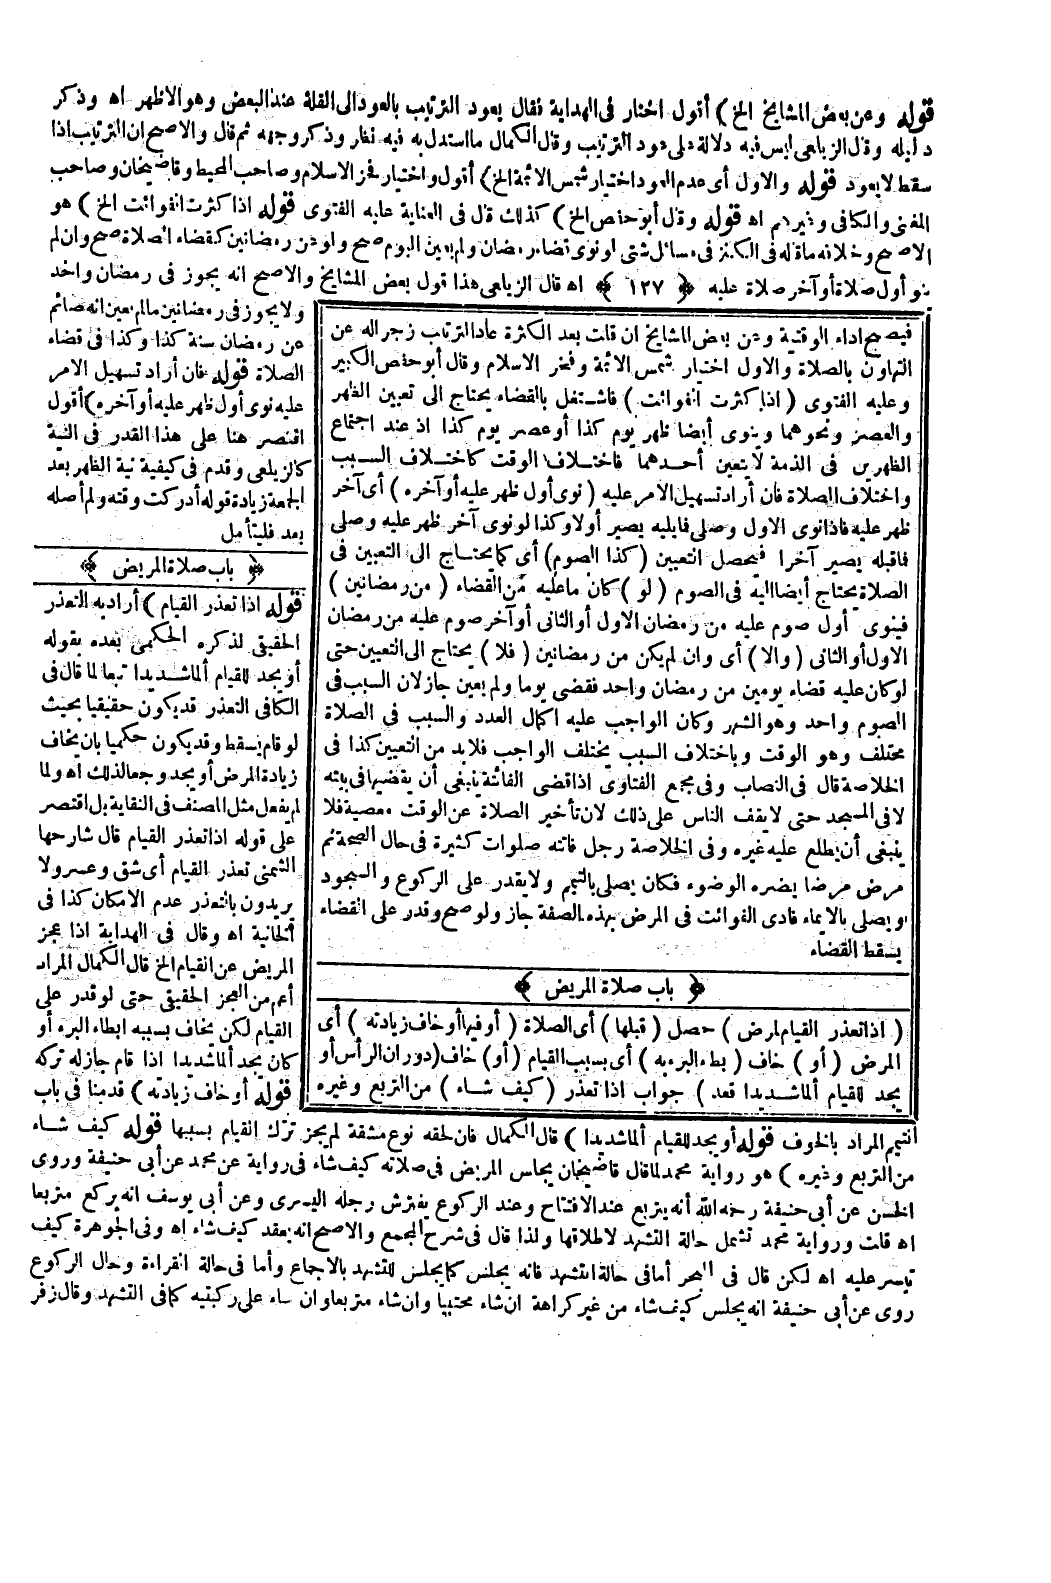 قوله وعن بعض المشايخ الخ) أقول اختار في الهداية فقال يعود الترتيب بالعود الى القلة عند البعض وهو الاظهر اه وذكر
دليله وقال الزيلعى ليس فيه دلالة على عود الترتيب وقال الكمال ما استدل به فيه نظر وذكر وجهه ثم قال والاصح ان الترتيب اذا
سقط لا يعود قوله والاول أى عدم العود اختيار شمس الائمة الخ) أقول واختيار فخر الاسلام وصاحب المحيط وقاضيخان وصاحب
المغنى والكافى وغيرهم اه قوله وقال أبو حفص الخ) كذلك قال فى العناية عليه الفتوى قوله اذا كثرت الفوائت الخ) هو
الاصح وخلافه ما قاله فى الكنز فى مسائل شتى لو نوى قضاء رمضان ولم يعين اليوم صح ولو عن رمضانين كقضاء الصلاة صح وان لم
ينو أول صلاة أو آخر صلاة عليه ﴿ ١٢٧ ﴾ اه قال الزيلعى هذا قول بعض المشايخ والاصح انه يجوز فى رمضان واحد
ولا يجوز فى رمضانين مالم يعين انه صائم
عن رمضان سنة كذا وكذا فى قضاء
الصلاة قوله فان أراد تسهيل الامر
عليه نوى أول ظهر عليه أو آخره) أقول
اقتصر هنا على هذا القدر فى النية
كالزيلعى وقدم فى كيفية نية الظهر بعد
الجمعة زيادة قوله أدركت وقته ولم أصله
بعد فليتأمل
﴿ باب صلاة المريض ﴾
قوله اذا تعذر القيام) أراد به التعذر
الحقيقى لذكره الحكمى بعده بقوله
أو يجد للقيام ألما شديدا تبعا لما قال فى
الكافى التعذر قد يكون حقيقيا بحيث
لو قام يسقط وقد يكون حكميا بان يخاف
زيادة المرض أو يجد وجعا لذلك اه ولما
لم يفعل مثل المصنف فى النقاية بل اقتصر
على قوله اذا تعذر القيام قال شارحها
الشمنى تعذر القيام أى شق وعسر ولا
يريدون بالتعذر عدم الامكان كذا فى
الخانية اه وقال فى الهداية اذا عجز
المريض عن القيام الخ قال الكمال المراد
أعم من العجز الحقيقى حتى لو قدر على
القيام لكن يخاف بسببه ابطاء البرء أو
كان يجد ألما شديدا اذا قام جاز له تركه
قوله أو خاف زيادته) قدمنا فى باب
فيصح اداء الوقتية وعن بعض المشايخ ان قلت بعد الكثرة عاد الترتيب زجرا له عن
التهاون بالصلاة والاول اختيار شمس الائمة وفخر الاسلام وقال أبو حفص الكبير
وعليه الفتوى (اذا كثرت الفوائت) فاشتغل بالقضاء يحتاج الى تعيين الظهر
والعصر ونحوهما وينوى أيضا ظهر يوم كذا أو عصر يوم كذا اذ عند اجتماع
الظهرين فى الذمة لا يتعين أحدهما فاختلاف الوقت كاختلاف السبب
واختلاف الصلاة فان أراد تسهيل الامر عليه (نوى أول ظهر عليه أو آخره) أى آخر
ظهر عليه فاذا نوى الاول وصلى فما يليه يصير أولا وكذا لو نوى آخر ظهر عليه وصلى
فما قبله يصير آخرا فيحصل التعيين (كذا الصوم) أى كما يحتاج الى التعيين فى
الصلاة يحتاج أيضا اليه فى الصوم (لو) كان ما عليه من القضاء (من رمضانين)
فينوى أول صوم عليه من رمضان الاول أو الثانى أو آخر صوم عليه من رمضان
الاول أو الثانى (والا) أى وان لم يكن من رمضانين (فلا) يحتاج الى التعيين حتى
لو كان عليه قضاء يومين من رمضان واحد فقضى يوما ولم يعين جاز لان السبب فى
الصوم واحد وهو الشهر وكان الواجب عليه اكمال العدد والسبب فى الصلاة
مختلف وهو الوقت وباختلاف السبب يختلف الواجب فلابد من التعيين كذا فى
الخلاصة قال فى النصاب وفى مجمع الفتاوى اذا قضى الفائتة ينبغى أن يقضيها فى بيته
لا فى المسجد حتى لا يقف الناس على ذلك لان تأخير الصلاة عن الوقت معصية فلا
ينبغى أن يطلع عليه غيره وفى الخلاصة رجل فاتته صلوات كثيرة فى حال الصحة ثم
مرض مرضا يضره الوضوء فكان يصلى بالتيمم ولا يقدر على الركوع والسجود
ويصلى بالايماء فادى الفوائت فى المرض بهذه الصفة جاز ولو صح وقدر على القضاء
يسقط القضاء
﴿ باب صلاة المريض ﴾
(اذا تعذر القيام لمرض) حصل (قبلها) أى الصلاة (أو فيها أو خاف زيادته) أى
المرض (أو) خاف (بطء البرء به) أى بسبب القيام (أو) خاف (دوران الرأس أو
يجد للقيام ألما شديدا قعد) جواب اذا تعذر (كيف شاء) من التربع وغيره
التيمم المراد بالخوف قوله أو يجد للقيام ألما شديدا) قال الكمال فان لحقه نوع مشقة لم يجز ترك القيام بسببها قوله كيف شاء
من التربع وغيره) هو رواية محمد لما قال قاضيخان يجلس المريض فى صلاته كيف شاء فى رواية عن محمد عن أبى حنيفة وروى
الحسن عن أبى حنيفة رحمه الله أنه يتربع عند الافتتاح وعند الركوع يفترش رجله اليسرى وعن أبى يوسف انه يركع متربعا
اه قلت ورواية محمد تشمل حالة التشهد لاطلاقها ولذا قال فى شرح المجمع والاصح انه يقعد كيف شاء اه وفى الجوهرة كيف
تيسر عليه اه لكن قال فى البحر أما فى حالة التشهد فانه يجلس كما يجلس للتشهد بالاجماع وأما فى حالة القراءة وحال الركوع
روى عن أبى حنيفة انه يجلس كيف شاء من غير كراهة ان شاء محتبيا وان شاء متربعا وان شاء على ركبتيه كما فى التشهد وقال زفر